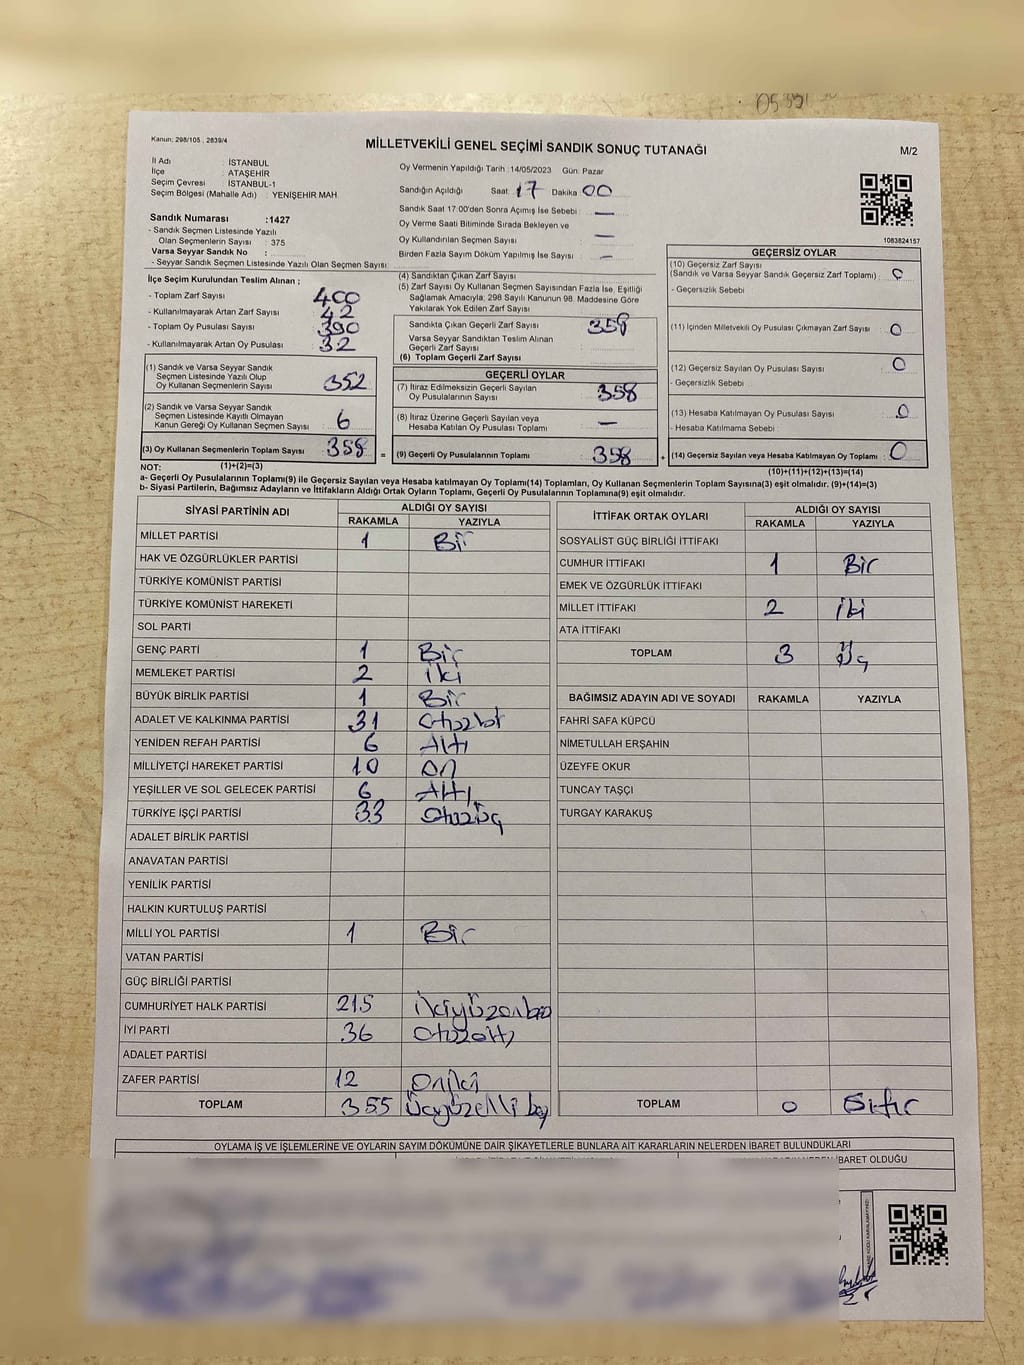 Kanun: 298/105 , 2839/4
MİLLETVEKİLİ GENEL SEÇİMİ SANDIK SONUÇ TUTANAĞI
M/2
İl Adı : İSTANBUL
İlçe : ATAŞEHİR
Seçim Çevresi : İSTANBUL-1
Seçim Bölgesi (Mahalle Adı) : YENİŞEHİR MAH.
Sandık Numarası :1427
- Sandık Seçmen Listesinde Yazılı
Olan Seçmenlerin Sayısı : 375
Varsa Seyyar Sandık No :
- Seyyar Sandık Seçmen Listesinde Yazılı Olan Seçmen Sayısı:
Oy Vermenin Yapıldığı Tarih :14/05/2023 Gün: Pazar
Sandığın Açıldığı Saat: 17 Dakika 00
Sandık Saat 17:00'den Sonra Açımış İse Sebebi : —
Oy Verme Saati Bitiminde Sırada Bekleyen ve
Oy Kullandırılan Seçmen Sayısı : —
Birden Fazla Sayım Döküm Yapılmış İse Sayısı : —
1083824157
İlçe Seçim Kurulundan Teslim Alınan ;
- Toplam Zarf Sayısı : 400
- Kullanılmayarak Artan Zarf Sayısı : 42
- Toplam Oy Pusulası Sayısı : 390
- Kullanılmayarak Artan Oy Pusulası : 32
(1) Sandık ve Varsa Seyyar Sandık
Seçmen Listesinde Yazılı Olup
Oy Kullanan Seçmenlerin Sayısı : 352
(2) Sandık ve Varsa Seyyar Sandık
Seçmen Listesinde Kayıtlı Olmayan
Kanun Gereği Oy Kullanan Seçmen Sayısı : 6
(3) Oy Kullanan Seçmenlerin Toplam Sayısı : 358
(1)+(2)=(3)
(4) Sandıktan Çıkan Zarf Sayısı :
(5) Zarf Sayısı Oy Kullanan Seçmen Sayısından Fazla İse, Eşitliği
Sağlamak Amacıyla; 298 Sayılı Kanunun 98. Maddesine Göre
Yakılarak Yok Edilen Zarf Sayısı :
Sandıkta Çıkan Geçerli Zarf Sayısı : 358
Varsa Seyyar Sandıktan Teslim Alınan
Geçerli Zarf Sayısı :
(6) Toplam Geçerli Zarf Sayısı :
GEÇERLİ OYLAR
(7) İtiraz Edilmeksizin Geçerli Sayılan
Oy Pusulalarının Sayısı : 358
(8) İtiraz Üzerine Geçerli Sayılan veya
Hesaba Katılan Oy Pusulası Toplamı : —
= (9) Geçerli Oy Pusulalarının Toplamı : 358
GEÇERSİZ OYLAR
(10) Geçersiz Zarf Sayısı
(Sandık ve Varsa Seyyar Sandık Geçersiz Zarf Toplamı) : 0
- Geçersizlik Sebebi :
(11) İçinden Milletvekili Oy Pusulası Çıkmayan Zarf Sayısı : 0
(12) Geçersiz Sayılan Oy Pusulası Sayısı : 0
- Geçersizlik Sebebi :
(13) Hesaba Katılmayan Oy Pusulası Sayısı : 0
- Hesaba Katılmama Sebebi :
+ (14) Geçersiz Sayılan veya Hesaba Katılmayan Oy Toplamı : 0
(10)+(11)+(12)+(13)=(14)
NOT:
a- Geçerli Oy Pusulalarının Toplamı(9) ile Geçersiz Sayılan veya Hesaba katılmayan Oy Toplamı(14) Toplamları, Oy Kullanan Seçmenlerin Toplam Sayısına(3) eşit olmalıdır. (9)+(14)=(3)
b- Siyasi Partilerin, Bağımsız Adayların ve İttifakların Aldığı Ortak Oyların Toplamı, Geçerli Oy Pusulalarının Toplamına(9) eşit olmalıdır.
SİYASİ PARTİNİN ADI ALDIĞI OY SAYISI
RAKAMLA YAZIYLA
MİLLET PARTİSİ 1 Bir
HAK VE ÖZGÜRLÜKLER PARTİSİ
TÜRKİYE KOMÜNİST PARTİSİ
TÜRKİYE KOMÜNİST HAREKETİ
SOL PARTİ
GENÇ PARTİ 1 Bir
MEMLEKET PARTİSİ 2 iki
BÜYÜK BİRLİK PARTİSİ 1 Bir
ADALET VE KALKINMA PARTİSİ 31 otuzbir
YENİDEN REFAH PARTİSİ 6 Altı
MİLLİYETÇİ HAREKET PARTİSİ 10 on
YEŞİLLER VE SOL GELECEK PARTİSİ 6 Altı
TÜRKİYE İŞÇİ PARTİSİ 33 otuzüç
ADALET BİRLİK PARTİSİ
ANAVATAN PARTİSİ
YENİLİK PARTİSİ
HALKIN KURTULUŞ PARTİSİ
MİLLİ YOL PARTİSİ 1 Bir
VATAN PARTİSİ
GÜÇ BİRLİĞİ PARTİSİ
CUMHURİYET HALK PARTİSİ 215 ikiyüzonbeş
İYİ PARTİ 36 otuzaltı
ADALET PARTİSİ
ZAFER PARTİSİ 12 oniki
TOPLAM 355 üçyüzelli beş
İTTİFAK ORTAK OYLARI ALDIĞI OY SAYISI
RAKAMLA YAZIYLA
SOSYALİST GÜÇ BİRLİĞİ İTTİFAKI
CUMHUR İTTİFAKI 1 Bir
EMEK VE ÖZGÜRLÜK İTTİFAKI
MİLLET İTTİFAKI 2 iki
ATA İTTİFAKI
TOPLAM 3 üç
BAĞIMSIZ ADAYIN ADI VE SOYADI RAKAMLA YAZIYLA
FAHRİ SAFA KÜPCÜ
NİMETULLAH ERŞAHİN
ÜZEYFE OKUR
TUNCAY TAŞÇI
TURGAY KARAKUŞ
TOPLAM 0 Sıfır
OYLAMA İŞ VE İŞLEMLERİNE VE OYLARIN SAYIM DÖKÜMÜNE DAİR ŞİKAYETLERLE BUNLARA AİT KARARLARIN NELERDEN İBARET BULUNDUKLARI
İBARET OLDUĞU